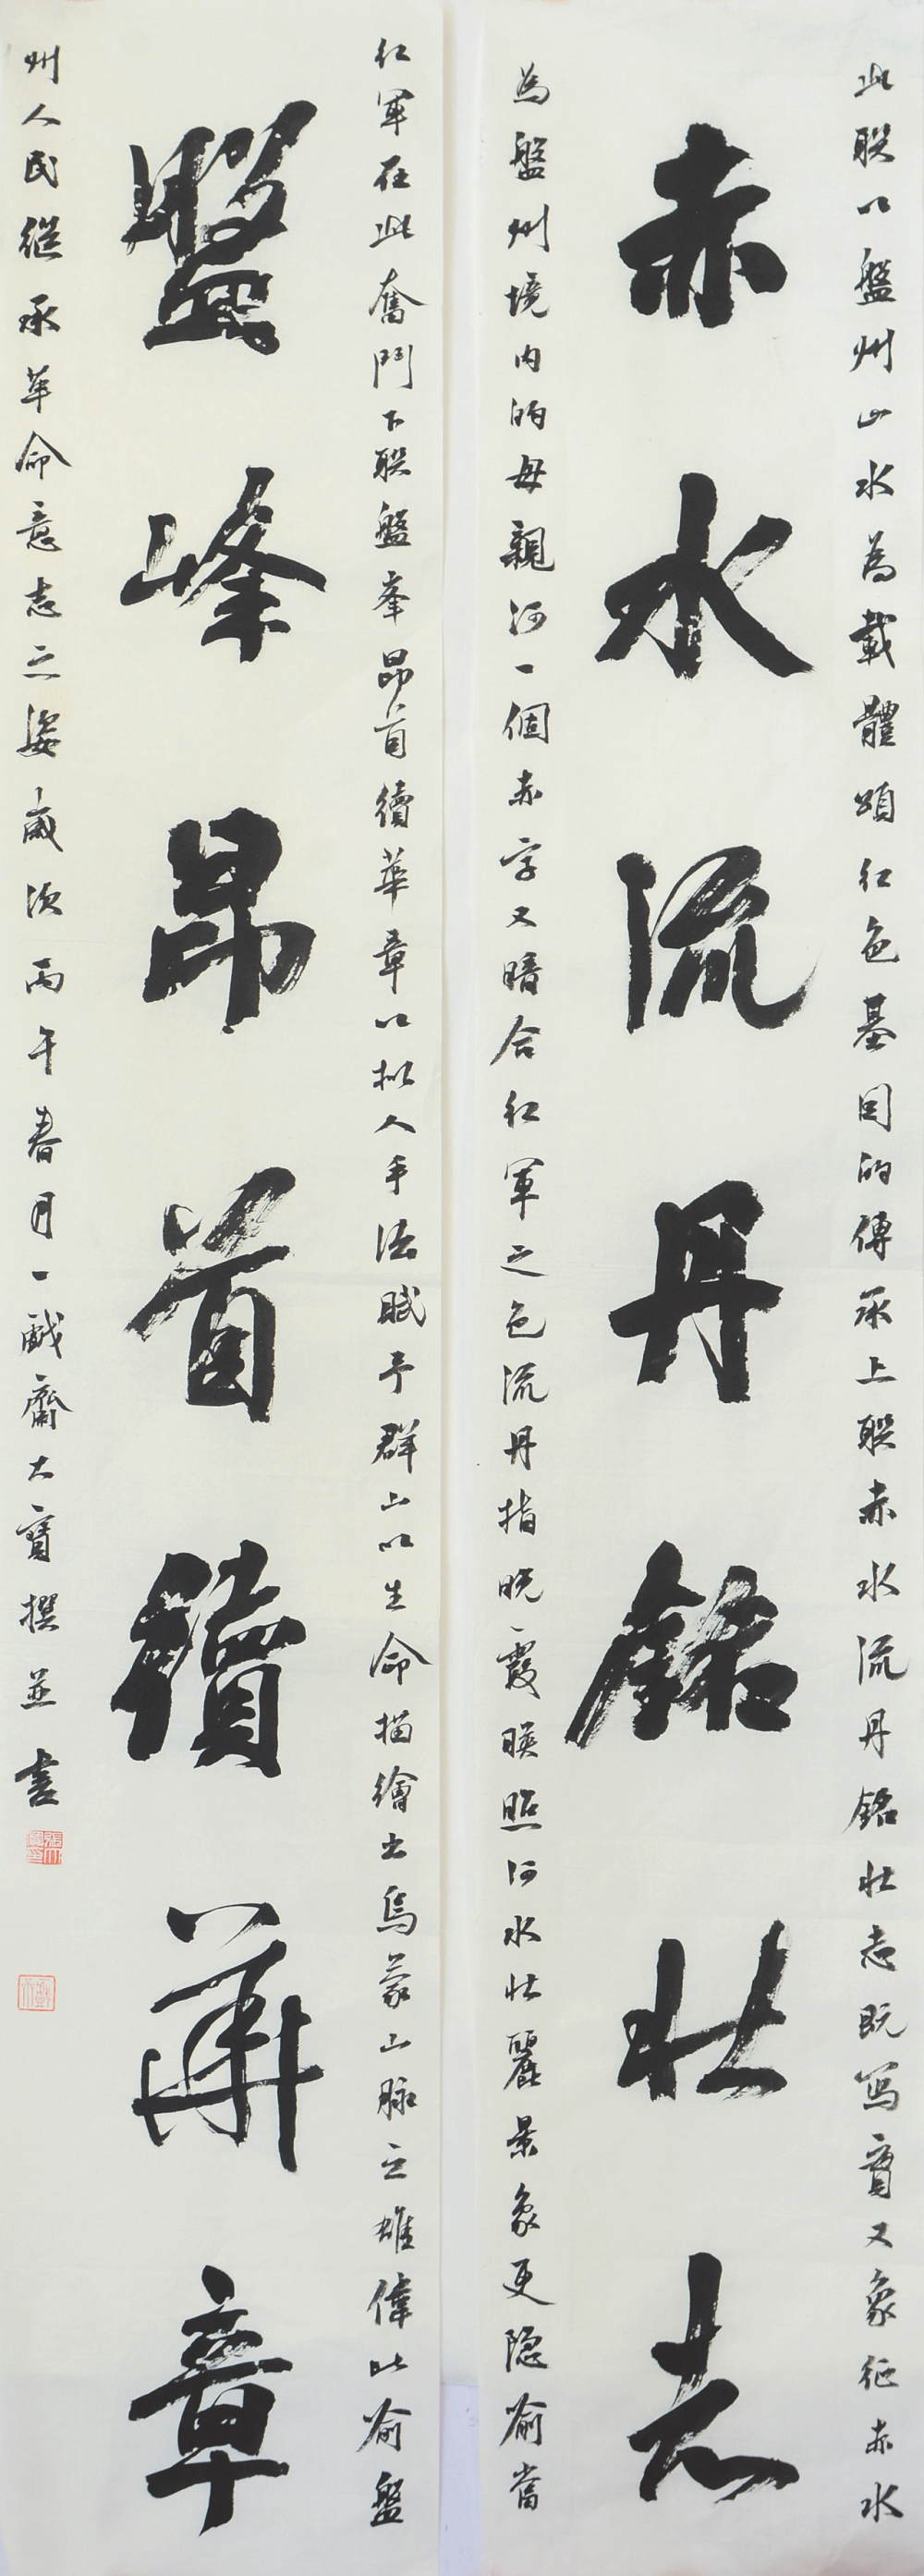 此聫以盤州山水為載體頌紅色基因的傳承上聫赤水流丹銘壯志既写實又象征赤水
赤水流丹銘壯志
為盤州境内的母親河一個赤字又暗合红軍之色流丹指晚霞映照河水壯麗景象更隐喻當
红軍在此奮鬥下聫盤峯昂首續華章以拟人手法賦予群山以生命描繪出烏蒙山脉之雄偉比喻盤
盤峰昂首續華章
州人民继承革命意志之姿歲次丙午春月一戱齋大寶撰並書